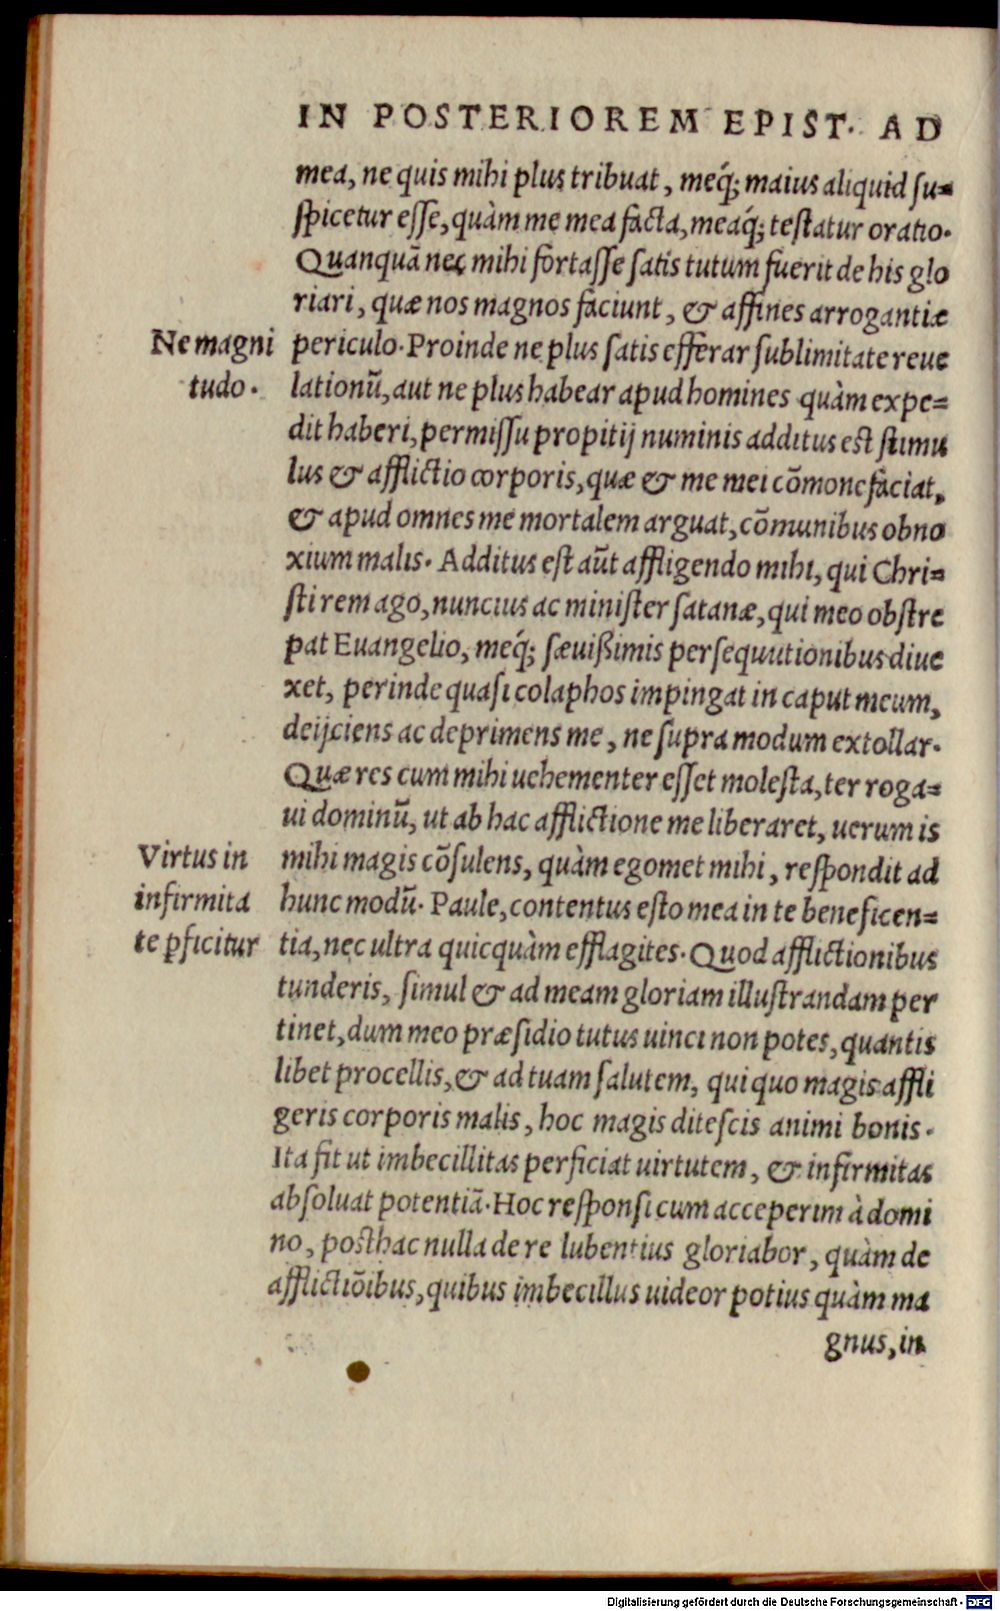 IN POSTERIOREM EPIST. AD
mea, ne quis mihi plus tribuat, meq́; maius aliquid su-
spicetur esse, quàm me mea facta, meaq́; testatur oratio.
Quanquā nec mihi fortasse satis tutum fuerit de his glo
riari, quæ nos magnos faciunt, & affines arrogantiæ
Ne magni
tudo.
periculo. Proinde ne plus satis efferar sublimitate reue
lationū, aut ne plus habear apud homines quàm expe-
dit haberi, permissu propitij numinis additus est stimu
lus & afflictio corporis, quæ & me mei cōmonefaciat,
& apud omnes me mortalem arguat, cōmunibus obno
xium malis. Additus est aūt affligendo mihi, qui Chri-
sti rem ago, nuncius ac minister satanæ, qui meo obstre
pat Euangelio, meq́; sæuißimis persequutionibus diue
xet, perinde quasi colaphos impingat in caput meum,
deijciens ac deprimens me, ne supra modum extollar.
Quæ res cum mihi uehementer esset molesta, ter roga-
ui dominū, ut ab hac afflictione me liberaret, uerum is
Virtus in
infirmita
te pficitur
mihi magis cōsulens, quàm egomet mihi, respondit ad
hunc modū. Paule, contentus esto mea in te beneficen-
tia, nec ultra quicquàm efflagites. Quod afflictionibus
tunderis, simul & ad meam gloriam illustrandam per
tinet, dum meo præsidio tutus uinci non potes, quantis
libet procellis, & ad tuam salutem, qui quo magis affli
geris corporis malis, hoc magis ditescis animi bonis.
Ita fit ut imbecillitas perficiat uirtutem, & infirmitas
absoluat potentiā. Hoc responsi cum acceperim à domi
no, posthac nulla de re lubentius gloriabor, quàm de
afflictiōibus, quibus imbecillus uideor potius quàm ma
gnus, in
Digitalisierung gefördert durch die Deutsche Forschungsgemeinschaft - DFG